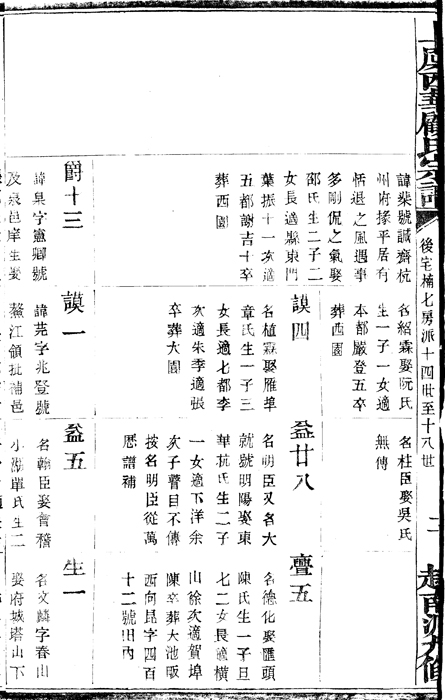 上虞西華顧氏宗譜
後宅楠七房派十四世至十八世
二
諱棐號諴齋杭
州府掾平居有
恬退之風遇事
多剛侃之氣娶
邵氏生二子二
女長適縣東門
葉振十一次適
五都謝吉十卒
葬西園
爵十三
諱臭字憲卿號
及泉邑庠生娶
名紹霖娶阮氏
生一子一女適
本都嚴登五卒
葬西園
謨四
名植霖娶雁埠
章氏生一子三
女長適七都李
次適朱季適張
卒葬大園
謨一
諱芫字兆登號
鰲江領批補邑
名杜臣娶吳氏
無傳
益廿八
名明臣又名大
就號明陽娶東
華杭氏生二子
一女適下洋余
次子瞽目不傳
按名明臣從萬
曆譜補
益五
名翰臣娶會稽
小湖單氏生二
亶五
名德化娶匯頭
陳氏生一子旦
七二女長適橫
山徐次適賀埠
陳卒葬大池畈
西向昆字四百
十二號田內
生一
名文麟字春山
娶府城塔山下